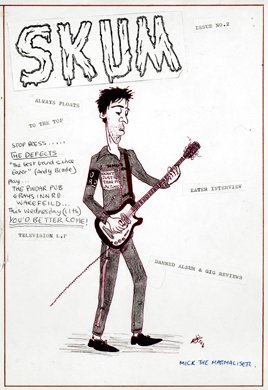 SKUM
ISSUE NO.2
ALWAYS FLOATS
TO THE TOP
STOP PRESS.....
THE DEFECTS
"The best band since
Eater" (Andy Blade)
play...
THE PINDAR PUB
GRAYS INN RD
WAKEFEILD...
This Wednesday (11th)
YOU'D BETTER COME!
EATER INTERVIEW
TELEVISION L.P
DAMNED ALBUM & GIG REVIEWS
MICK THE MARMALISER.